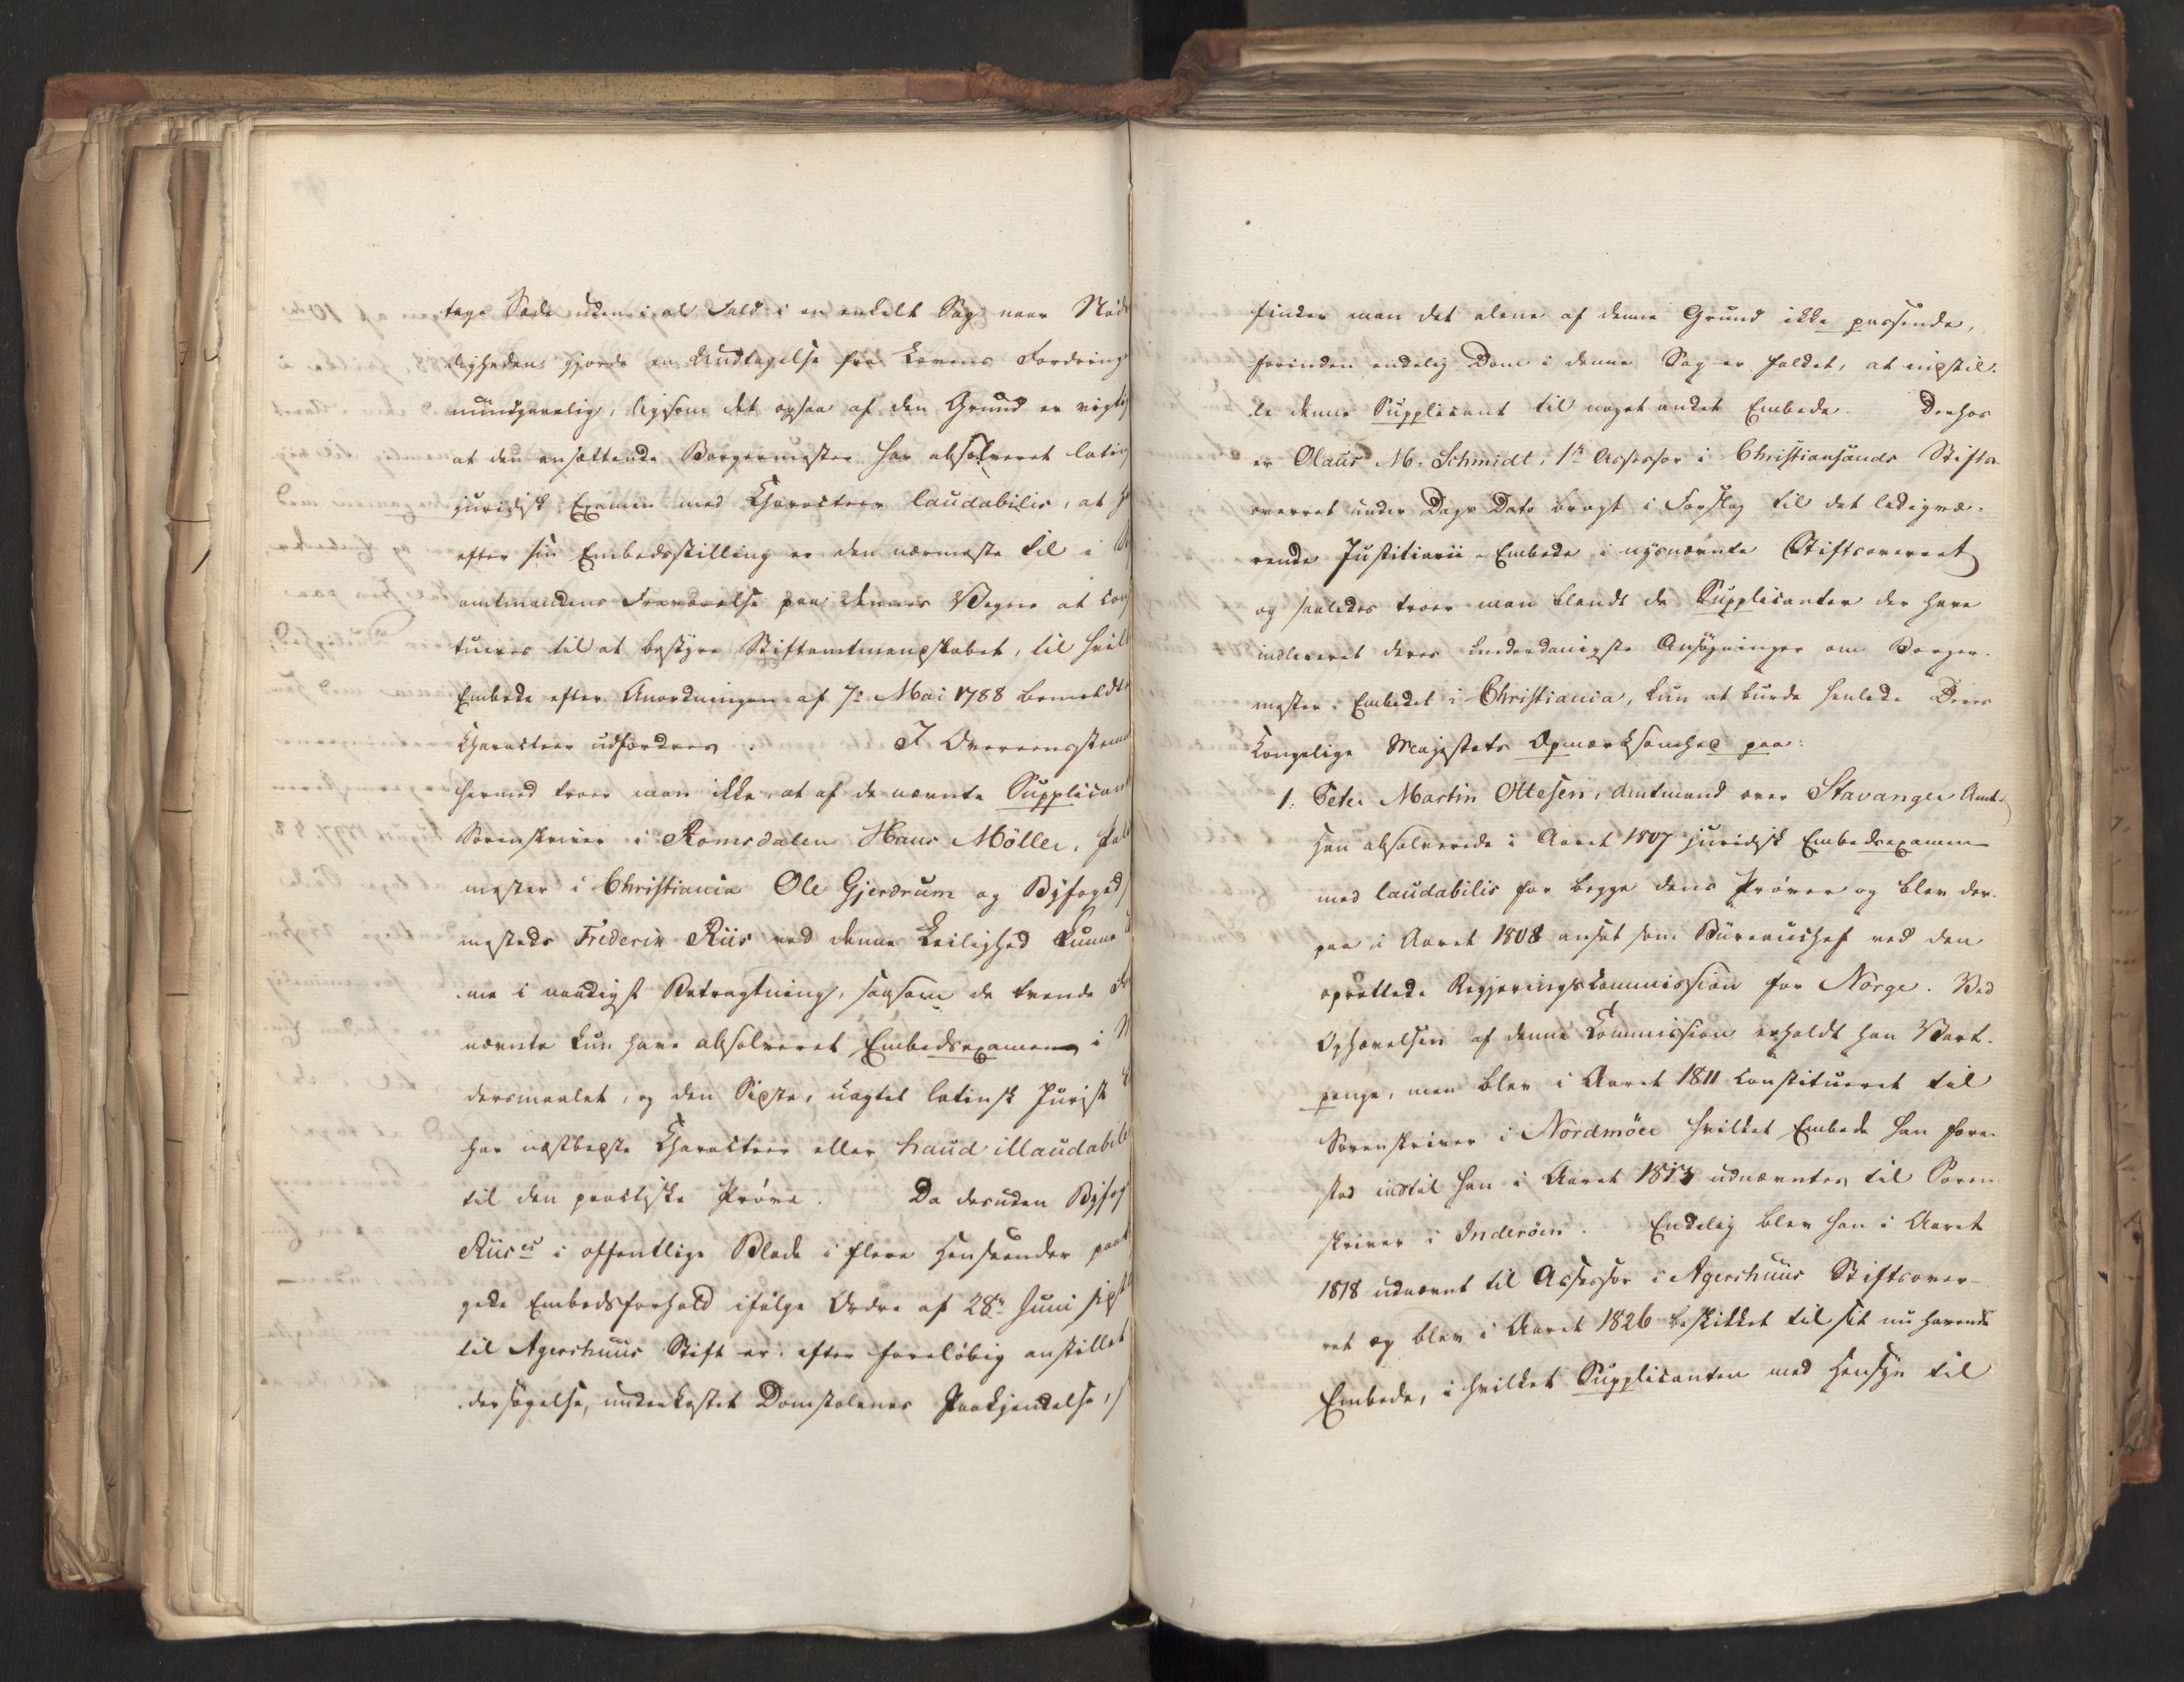 tage Sæde uden i al Fald i en enkelt Sag naar Nød¬
digheden gjorde en Undtagelse fra Lovens Fordring
uundgaaelig, ligesom det ogsaa af den Grund er vigtig
at den ansættende Borgermester har absolveret latin
juridisk Examen med Charakteer laudabilis, at h
efter sin Embedsstilling er den nærmeste til i St
amtmandens Fraværelse paa dennes Vegne at cons
tueres til at bestyre Stiftamtmandskabet, til hvilk
Embede efter Anordningen af 7: Mai 1788 bemeldte
Charakteer udfordres. I Overeensstem
hermed troer man ikke at af de nævnte Supplican
Sorenskriver i Romsdalen Hans Möller,
mester i Christiania Ole Gjerdrum og Byfoged
mesteds Frederik Riis ved denne Leilighed kunne
me i naadigst Betragtning, saasom de tvende F
nævnte kun have absolveret Embedsexamen i M
dersmaalet, og den Sidste, uagtet latinsk Jurist
har næstbedste Charakteer eller haud illaudabil
til den practiske Prøve. Da desuden Byfog
Riis's i offentlige Blade i flere Henseender paa
gede Embedsforhold ifølge Ordre af 28de Juni sidst
til Agershuus Stift er, efter foreløbig anstillet
dersøgelse, underkastet Domstolenes Paakjendelse, s
finder man det alene af denne Grund ikke passende,
forinden endelig Dom i denne Sag er faldet, at indstil¬
le denne Supplicant til noget andet Embede. Derhos
er Olaus M. Schmidt, 1ste Assessor i Christiansands Stifts¬
overret under Dags Dato bragt i Forslag til det ledigvæ¬
rende Justitiarii-Embede i nysnævnte Stiftsoverret
og saaledes troer man blandt de Supplicanter der have
indleveret deres underdanigste Ansøgninger om Borger¬
mester-Embedet i Christiania, kun at burde henlede Deres
Kongelige Majestæts Opmærksomhed paa:
1. Peter Martin Ottesen, Amtmand over Stavanger Amt.
Han absolverede i Aaret 1807 juridisk Embedsexamen
med laudabilis for begge dens Prøver og blev der¬
paa i Aaret 1808 ansat som Büreauchef ved den
oprettede Regjeringscommission for Norge. Ved
Ophævelsen af denne Commission erholdt han Vart¬
penge, men blev i Aaret 1811 constitueret til
Sorenskriver i Nordmöer hvilket Embede han fore¬
stod indtil han i Aaret 1813 udnævntes til Soren
skriver i Inderöen. Endelig blev han i Aaret
1818 udnævnt til Assessor i Agershuus Stiftsover¬
ret og blev i Aaret 1826 beskikket til sit nu havende
Embede, i hvilket Supplicanten med Hensyn til